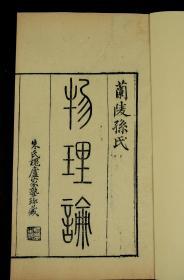 蘭陵孫氏
物理論
朱氏槐廬家塾珍藏